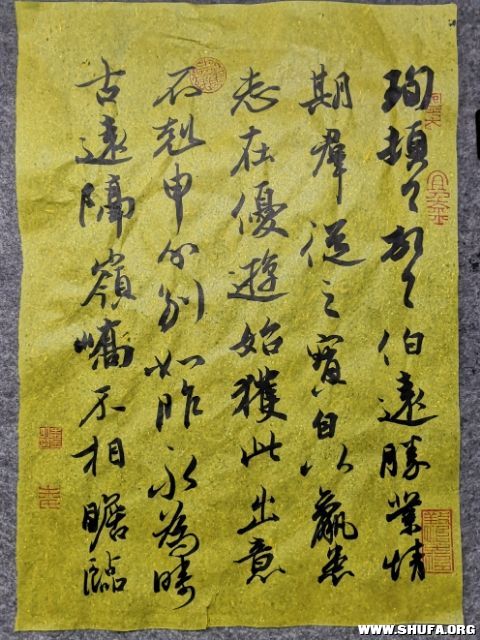 珣頓首頓首伯遠勝業情
期羣從之寶自以羸患
志在優遊始獲此出意
不剋申分別如昨永為疇
古遠隔嶺嶠不相瞻臨
WWW.SHUFA.ORG